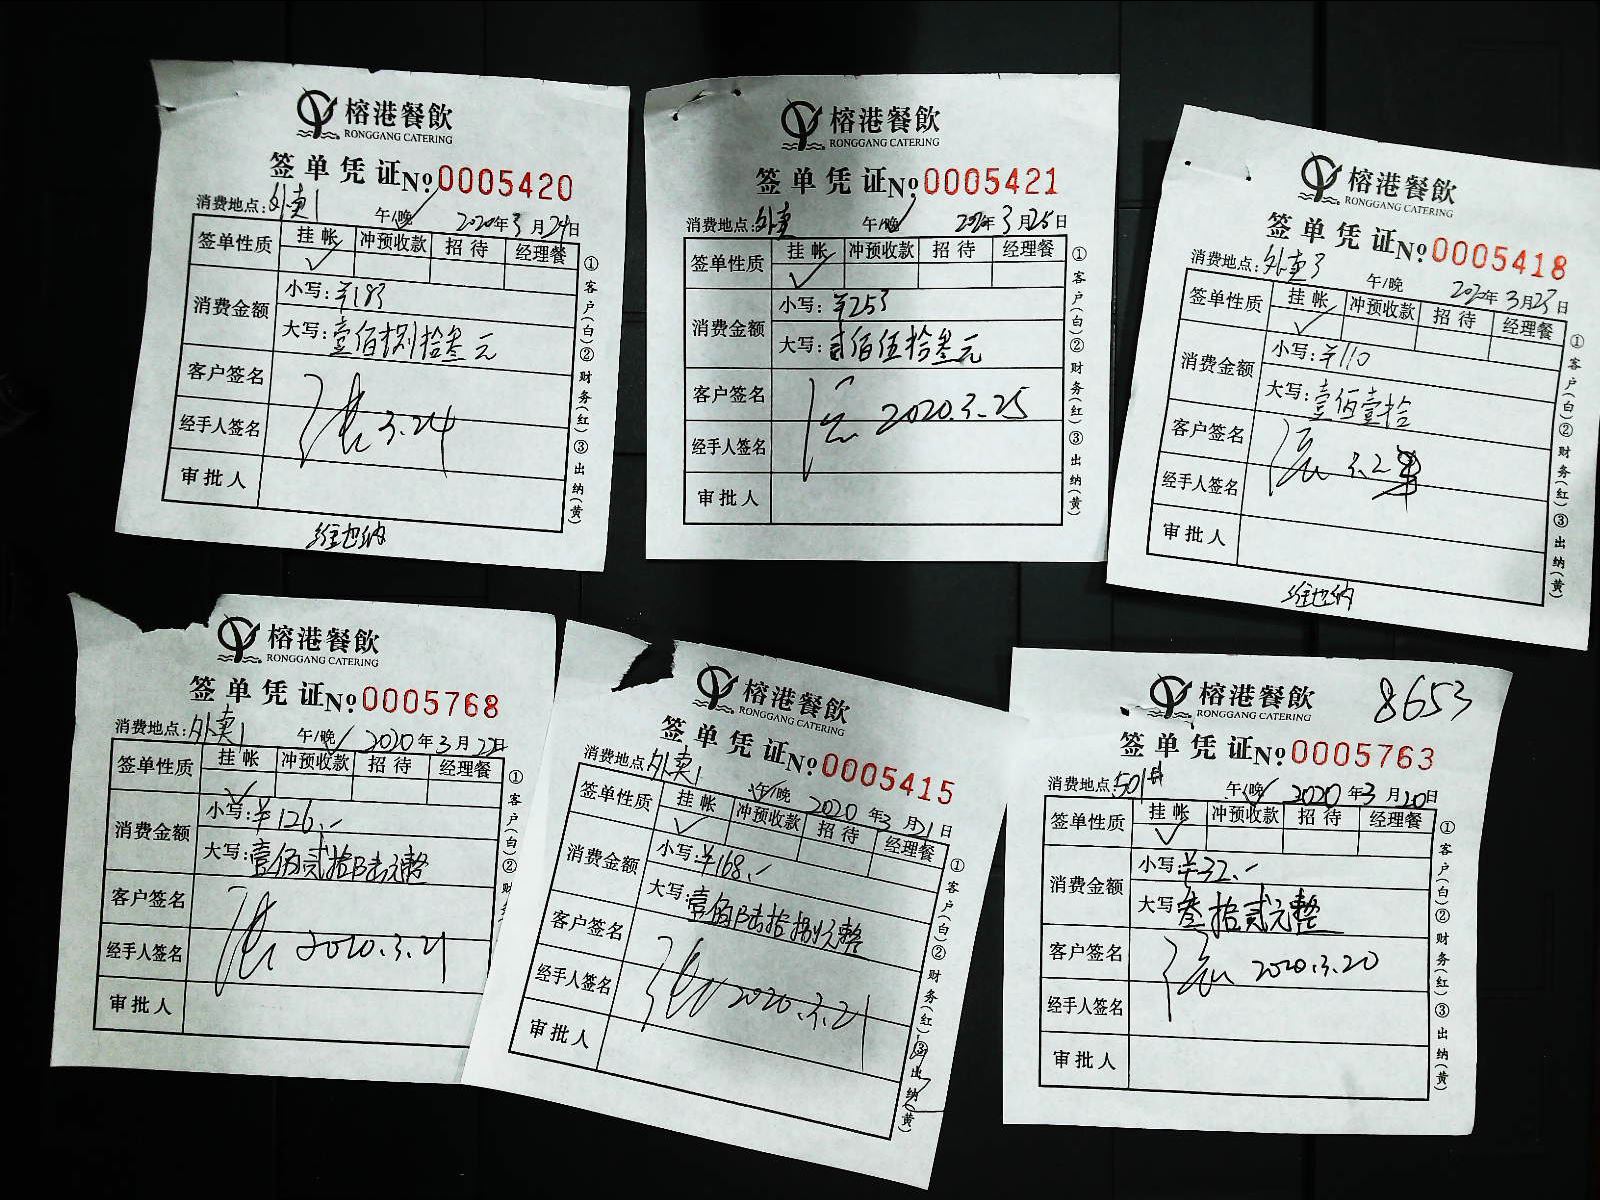 榕港餐飲
RONGGANG CATERING
签单凭证 No 0005420
消费地点:外卖1 午/晚 2020年3月24日
签单性质 挂帐 冲预收款 招待 经理餐
消费金额 小写:¥183
大写:壹佰捌拾叁元
客户签名
3.24
经手人签名
审批人
①客户(白)②财务(红)③出纳(黄)
维也纳
榕港餐飲
RONGGANG CATERING
签单凭证 No 0005421
消费地点:外卖 午/晚 2020年3月25日
签单性质 挂帐 冲预收款 招待 经理餐
消费金额 小写:¥253
大写:贰佰伍拾叁元
客户签名 2020.3.25
经手人签名
审批人
①客户(白)②财务(红)③出纳(黄)
榕港餐飲
RONGGANG CATERING
签单凭证 No 0005418
消费地点:外卖3 午/晚 2020年3月23日
签单性质 挂帐 冲预收款 招待 经理餐
消费金额 小写:¥110
大写:壹佰壹拾
客户签名
经手人签名
审批人
①客户(白)②财务(红)③出纳(黄)
维也纳
榕港餐飲
RONGGANG CATERING
签单凭证 No 0005768
消费地点:外卖1 午/晚 2020年3月22日
签单性质 挂帐 冲预收款 招待 经理餐
消费金额 小写:¥126.-
大写:壹佰贰拾陆元整
客户签名
经手人签名 2020.3.21
审批人
①客户(白)②财
榕港餐飲
RONGGANG CATERING
签单凭证 No 0005415
消费地点 外卖1 午/晚 2020年3月21日
签单性质 挂帐 冲预收款 招待 经理餐
消费金额 小写:¥168.-
大写:壹佰陆拾捌元整
客户签名
经手人签名 2020.3.21
审批人
①客户(白)②财务(红)③出纳(黄)
榕港餐飲 8653
RONGGANG CATERING
签单凭证 No 0005763
消费地点 501# 午/晚 2020年3月20日
签单性质 挂帐 冲预收款 招待 经理餐
消费金额 小写:¥32.-
大写 叁拾贰元整
客户签名 2020.3.20
经手人签名
审批人
①客户(白)②财务(红)③出纳(黄)